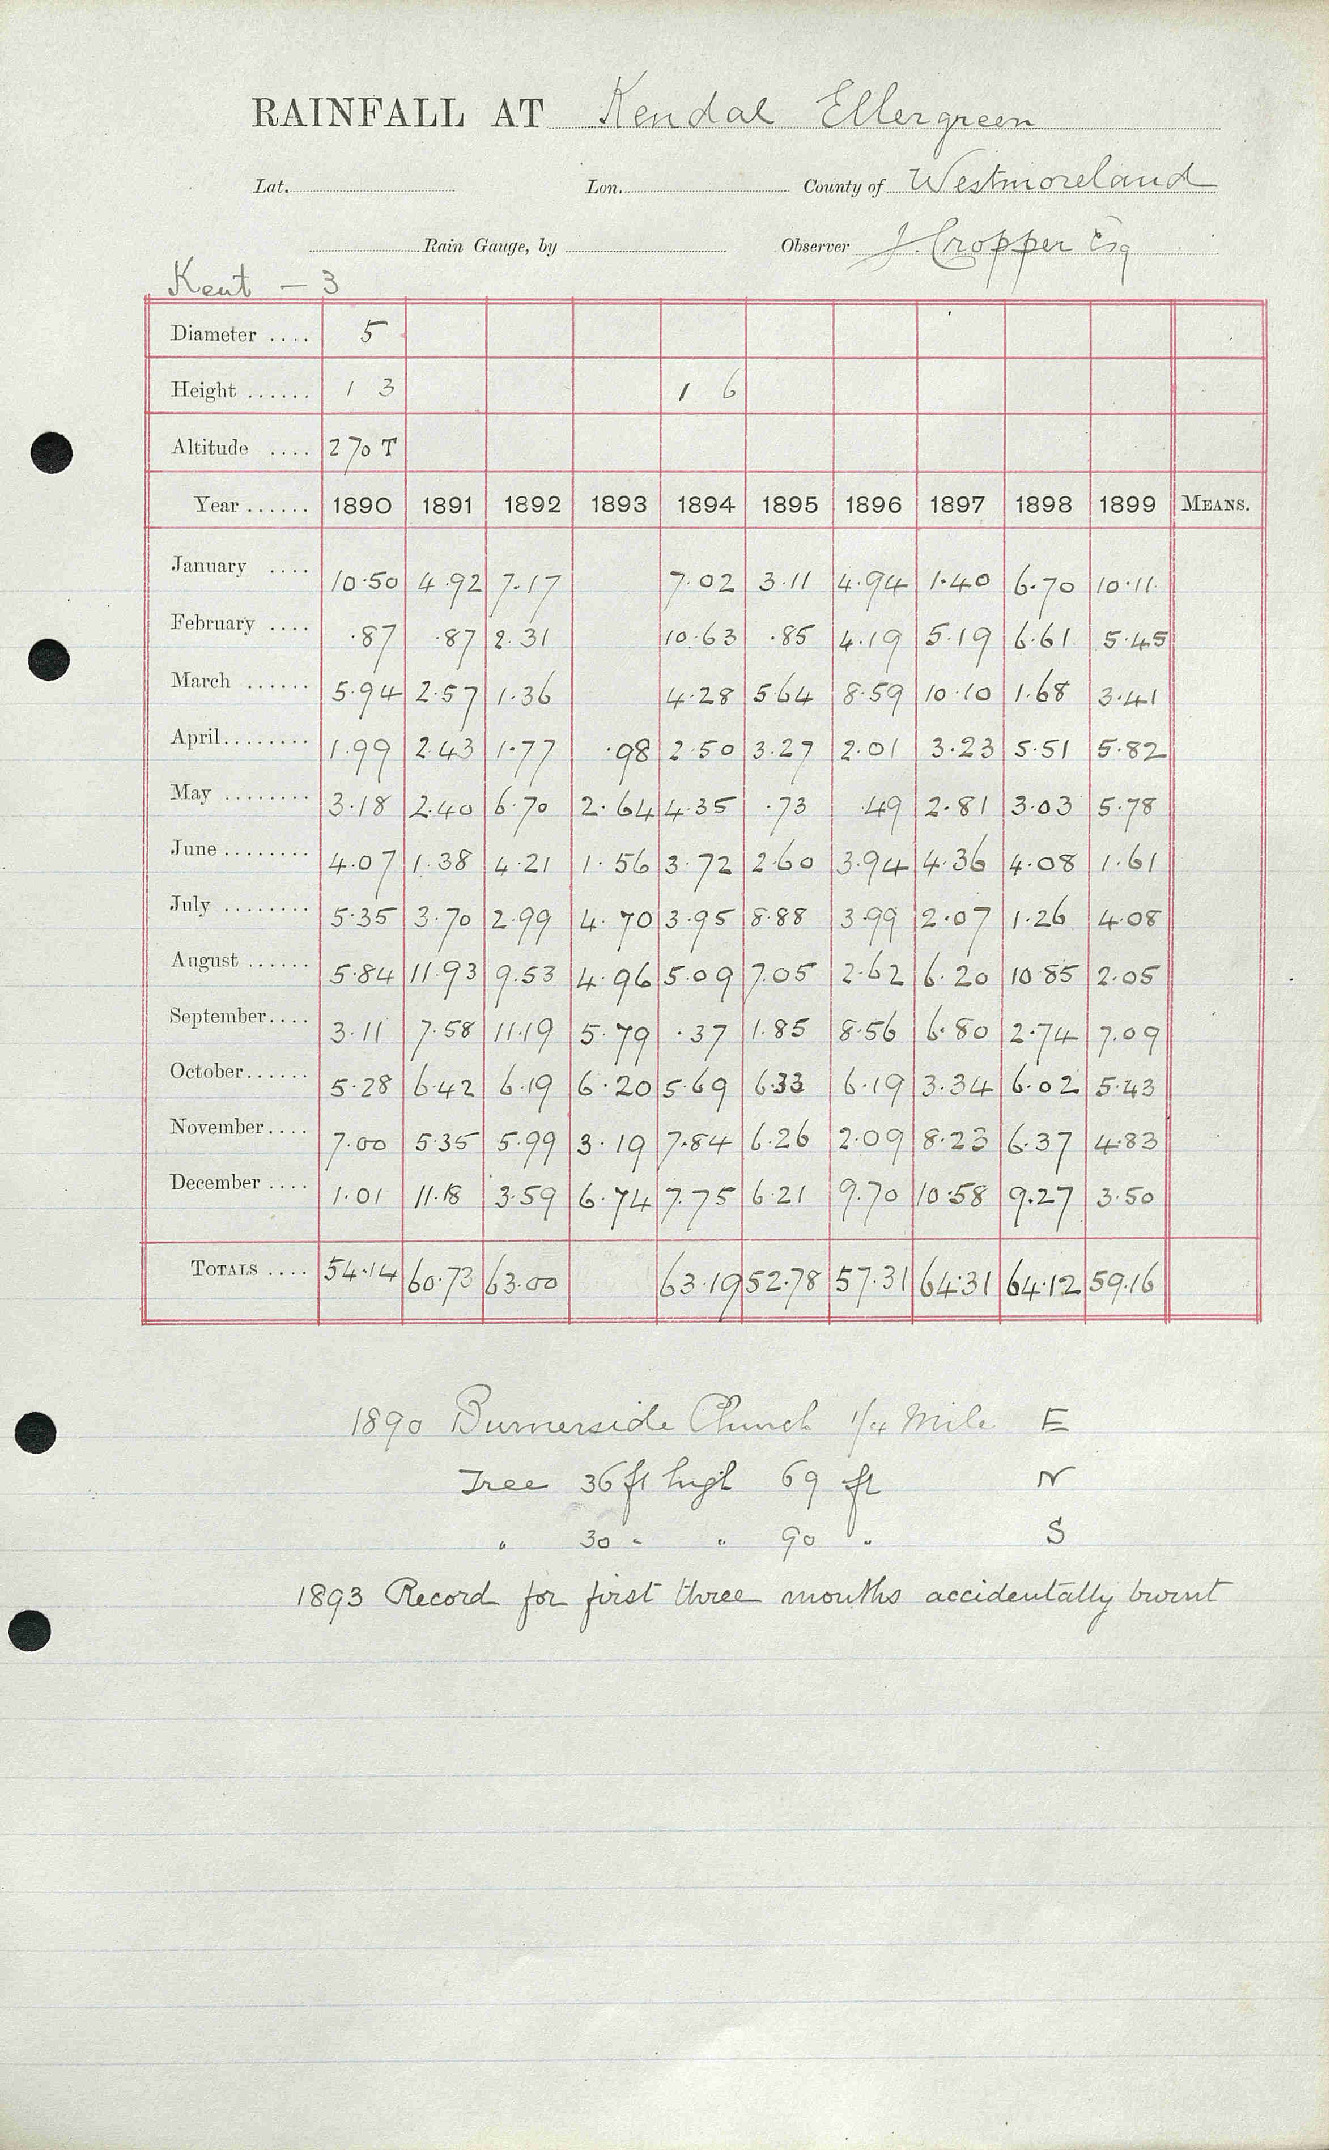 RAINFALL AT Kendal Ellergreen
Lat. Lon. County of Westmoreland
Rain Gauge, by Observer J. Cropper Esq
Kent – 3
Diameter .... 5
Height ...... 1 3 1 6
Altitude .... 270 T
Year ...... 1890 1891 1892 1893 1894 1895 1896 1897 1898 1899 MEANS.
January .... 10.50 4.92 7.17 7.02 3.11 4.94 1.40 6.70 10.11
February .... .87 .87 2.31 10.63 .85 4.19 5.19 6.61 5.45
March ...... 5.94 2.57 1.36 4.28 5.64 8.59 10.10 1.68 3.41
April........ 1.99 2.43 1.77 .98 2.50 3.27 2.01 3.23 5.51 5.82
May ........ 3.18 2.40 6.70 2.64 4.35 .73 .49 2.81 3.03 5.78
June ........ 4.07 1.38 4.21 1.56 3.72 2.60 3.94 4.36 4.08 1.61
July ........ 5.35 3.70 2.99 4.70 3.95 8.88 3.99 2.07 1.26 4.08
August ...... 5.84 11.93 9.53 4.96 5.09 7.05 2.62 6.20 10.85 2.05
September.... 3.11 7.58 11.19 5.79 .37 1.85 8.56 6.80 2.74 7.09
October...... 5.28 6.42 6.19 6.20 5.69 6.33 6.19 3.34 6.02 5.43
November.... 7.00 5.35 5.99 3.19 7.84 6.26 2.09 8.23 6.37 4.83
December .... 1.01 11.18 3.59 6.74 7.75 6.21 9.70 10.58 9.27 3.50
TOTALS .... 54.14 60.73 63.00 63.19 52.78 57.31 64.31 64.12 59.16
1890 Burnerside Church 1/4 Mile E
Tree 36 ft high 69 ft N
" 30 " " 90 " S
1893 Record for first three months accidentally burnt